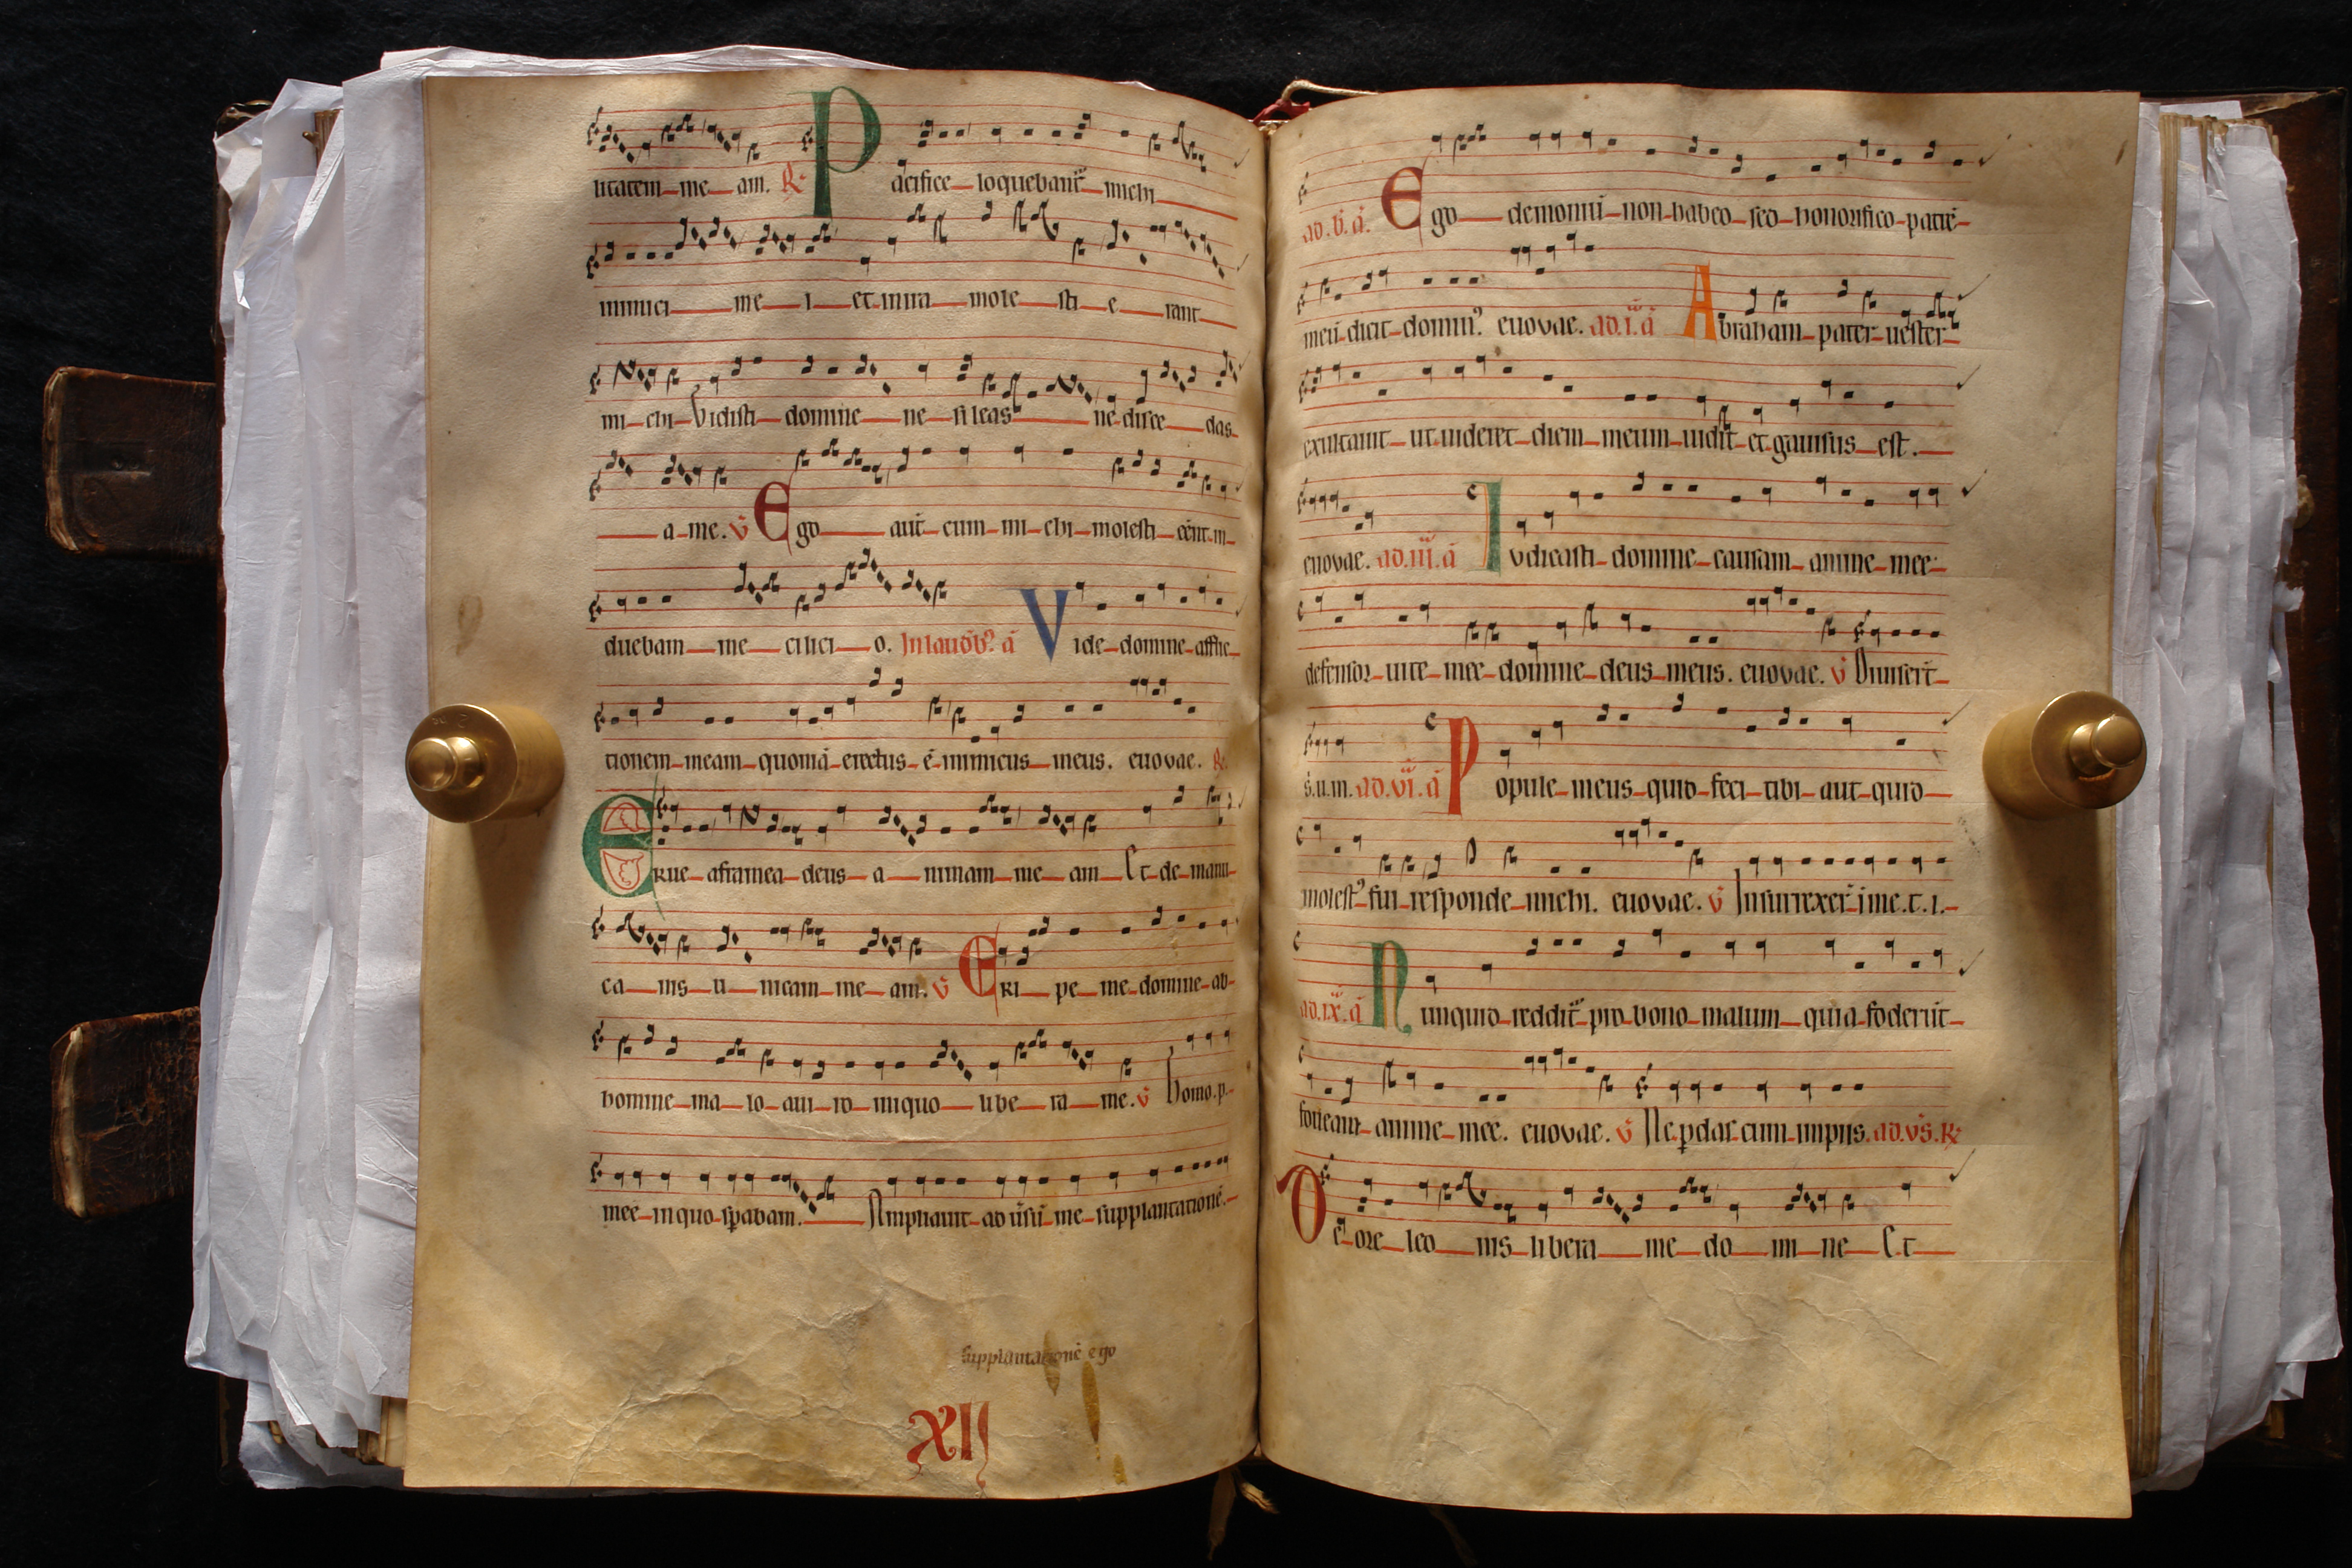 litatem me am. R Pacifice loquebant̄ michi
inimici me i et in ira mole sti e rant
mi chi Vidisti domine ne sileas ne disce das
a me. v̄ Ego aut̄ cum mi chi molesti eēnt in
duebam me cilici o. In laudib⁹ ā Vide domine afflic
tionem meam quoniā erectus ē inimicus meus. euovae. R
Erue a framea deus a nimam me am Et de manu
ca nis u nicam me am. v̄ Eri pe me domine ab
homine ma lo a ui ro iniquo libe ra me. v̄ homo.p.
mee in quo spabam. Ampliauit aduersū me supplantationē.
supplantationē ego
XII
ad.b.ā. Ego demoniū non habeo sed honorifico patrē
meū dicit domin⁹. euovae. ad.i.ā Abraham pater uester
exultauit ut uideret diem meum uidit et gauisus est.
euovae. ad.iii.ā Iudicasti domine causam anime mee
defensor uite mee domine deus meus. euovae. v̄ Diuiser̄t
s.u.m. ad.vi.ā Popule meus quid feci tibi aut quid
molest⁹ fui responde michi. euovae. v̄ Insurrexer̄ i me.t.i.
ad.ix.ā Nunquid reddit̄ pro bono malum quia foderūt
foueam anime mee. euovae. v̄ Ne pdas cum impiis. ad.vs̄.R
De ore leo nis libera me do mi ne Et